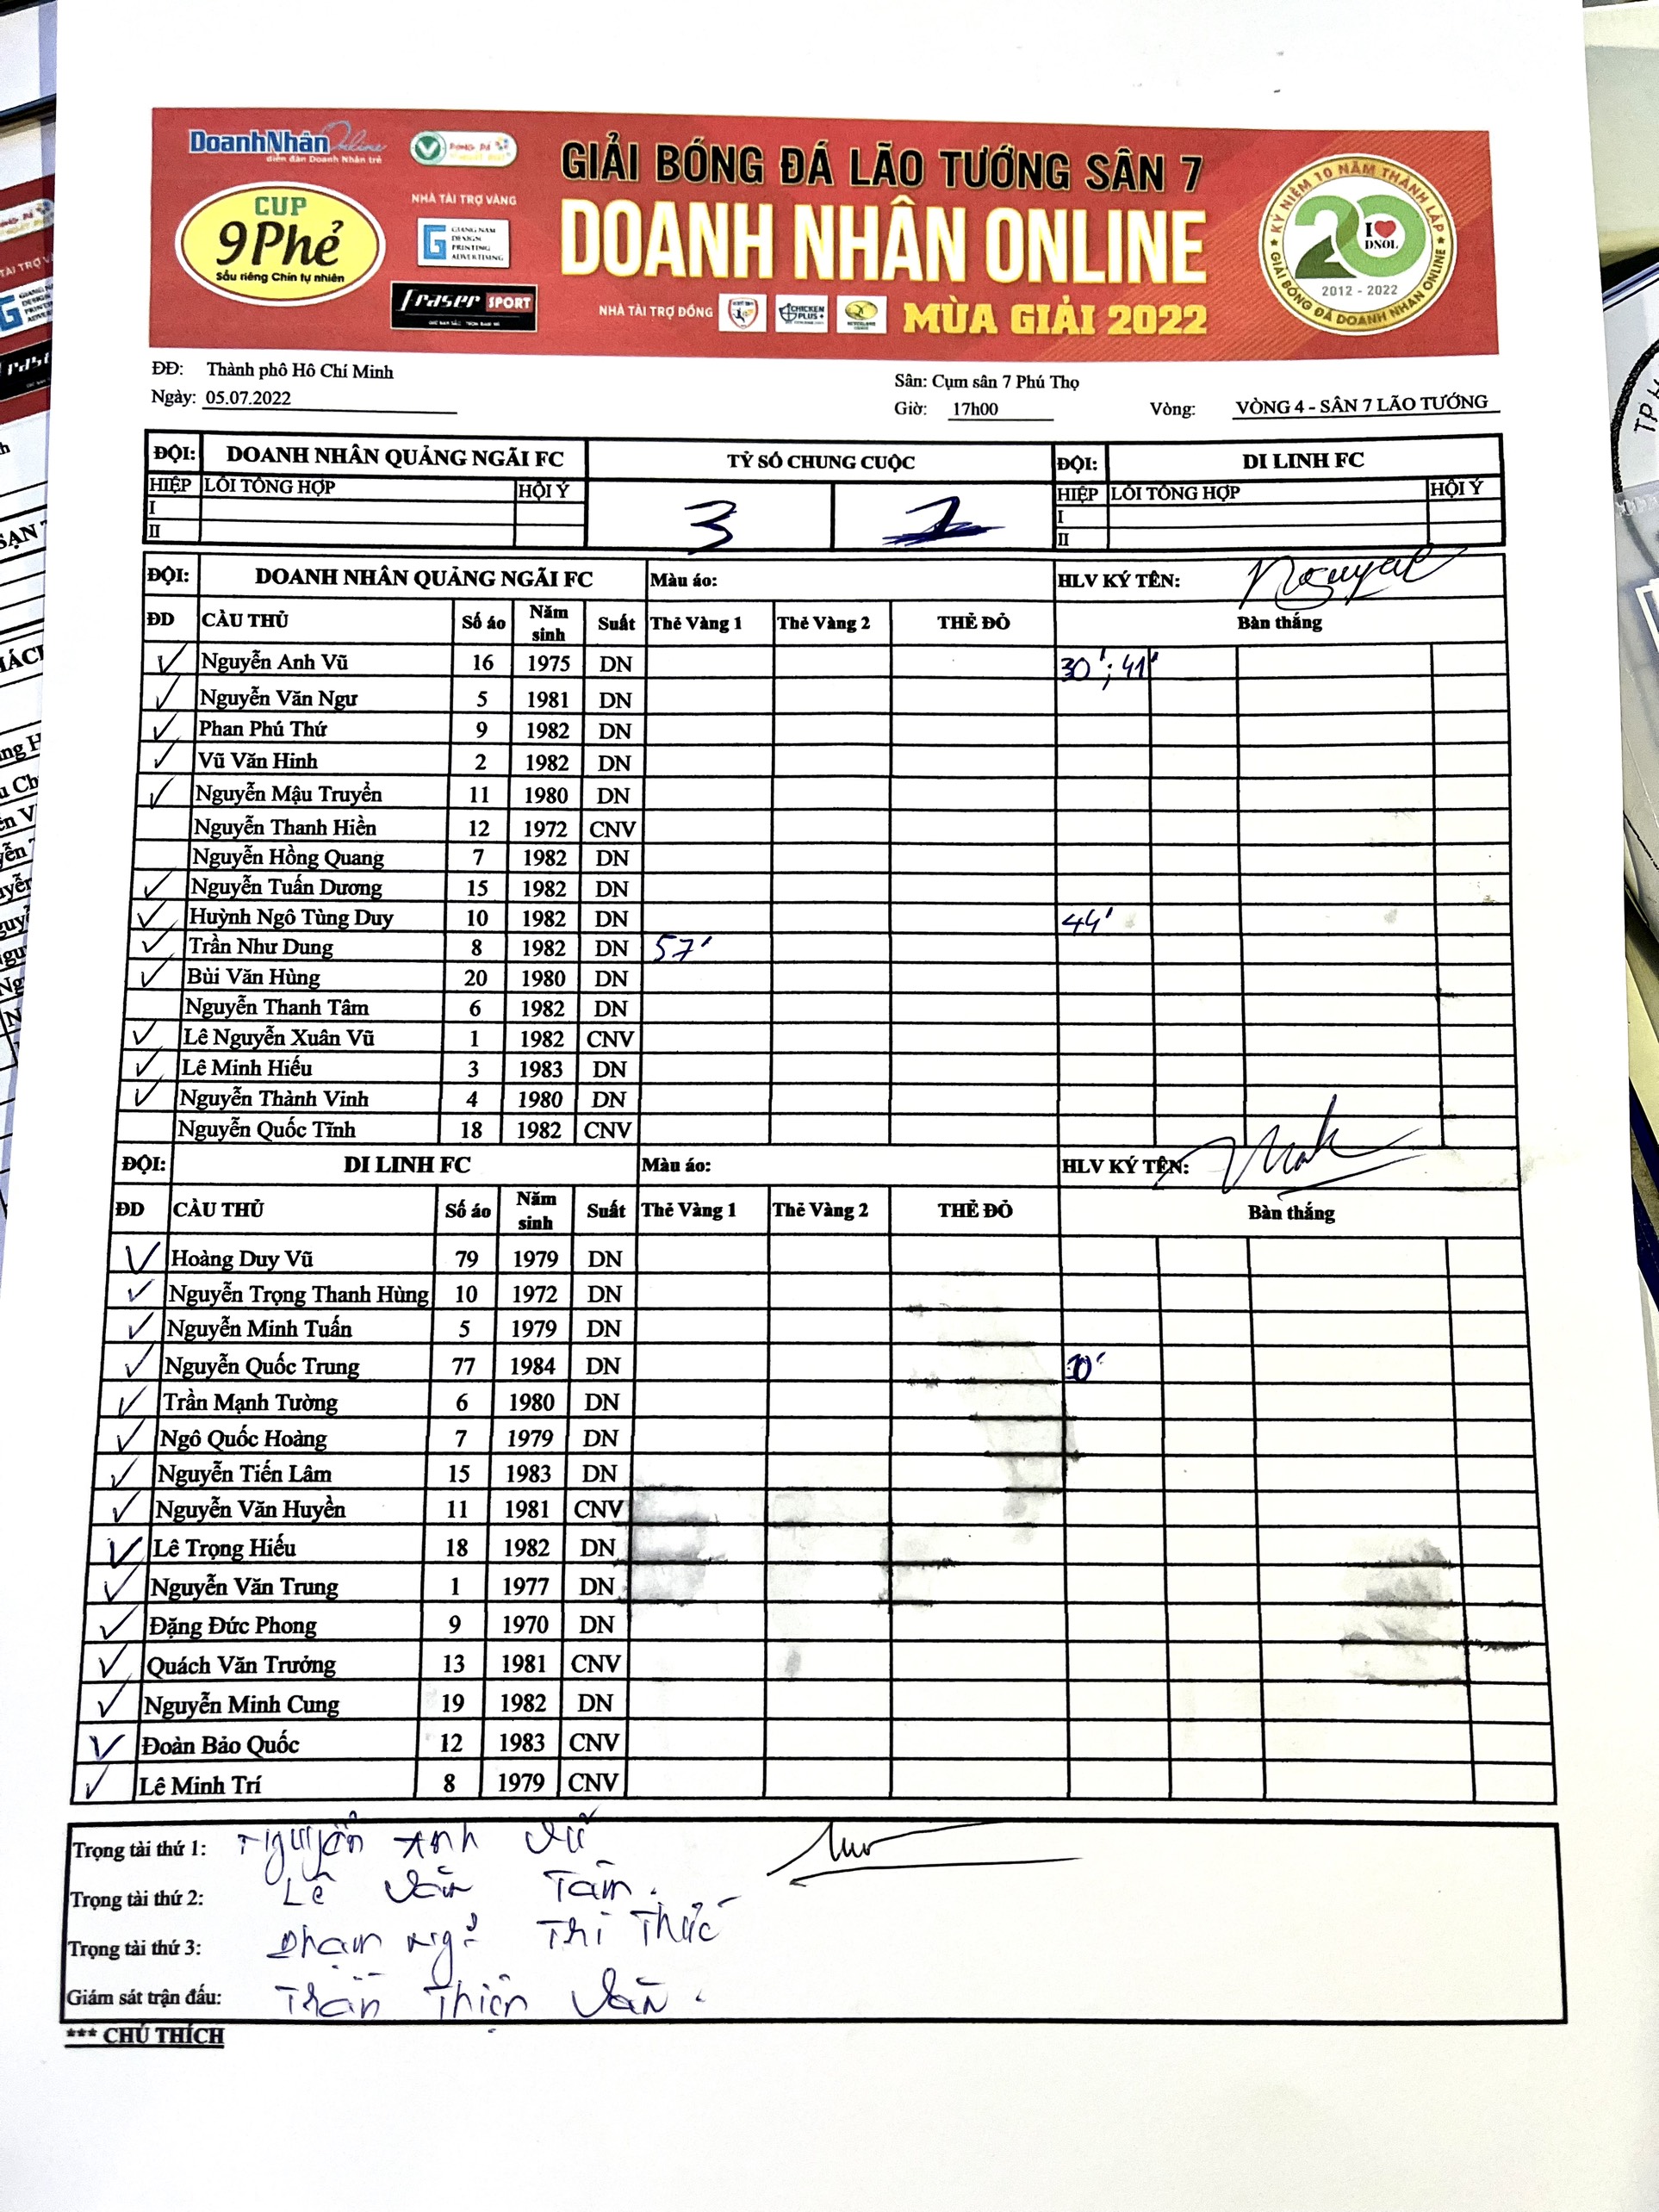 DoanhNhân Online
diễn đàn Doanh Nhân trẻ
CUP
9Phẻ
Sầu riêng Chín tự nhiên
NHÀ TÀI TRỢ VÀNG
GIANG NAM
DESIGN
PRINTING
ADVERTISING
fraser SPORT
GIẢI BÓNG ĐÁ LÃO TƯỚNG SÂN 7
DOANH NHÂN ONLINE
NHÀ TÀI TRỢ ĐỒNG
CHICKEN
PLUS+
MÙA GIẢI 2022
KỶ NIỆM 10 NĂM THÀNH LẬP
20
I
DNOL
2012 - 2022
GIẢI BÓNG ĐÁ DOANH NHÂN ONLINE
ĐĐ: Thành phô Hô Chí Minh
Sân: Cụm sân 7 Phú Thọ
Ngày: 05.07.2022
Giờ: 17h00 Vòng: VÒNG 4 - SÂN 7 LÃO TƯỚNG
ĐỘI: DOANH NHÂN QUẢNG NGÃI FC TỶ SỐ CHUNG CUỘC ĐỘI: DI LINH FC
HIỆP LỖI TỔNG HỢP HỘI Ý 3 HIỆP LỖI TỔNG HỢP HỘI Ý
I I
II II
ĐỘI: DOANH NHÂN QUẢNG NGÃI FC Màu áo: HLV KÝ TÊN:
ĐD CẦU THỦ Số áo Năm sinh Suất Thẻ Vàng 1 Thẻ Vàng 2 THẺ ĐỎ Bàn thắng
✓ Nguyễn Anh Vũ 16 1975 DN 30'; 41'
✓ Nguyễn Văn Ngư 5 1981 DN
✓ Phan Phú Thứ 9 1982 DN
✓ Vũ Văn Hinh 2 1982 DN
✓ Nguyễn Mậu Truyển 11 1980 DN
Nguyễn Thanh Hiền 12 1972 CNV
Nguyễn Hồng Quang 7 1982 DN
✓ Nguyễn Tuấn Dương 15 1982 DN
✓ Huỳnh Ngô Tùng Duy 10 1982 DN 44'
✓ Trần Như Dung 8 1982 DN 57'
✓ Bùi Văn Hùng 20 1980 DN
Nguyễn Thanh Tâm 6 1982 DN
✓ Lê Nguyễn Xuân Vũ 1 1982 CNV
✓ Lê Minh Hiếu 3 1983 DN
✓ Nguyễn Thành Vinh 4 1980 DN
Nguyễn Quốc Tĩnh 18 1982 CNV
ĐỘI: DI LINH FC Màu áo: HLV KÝ TÊN:
ĐD CẦU THỦ Số áo Năm sinh Suất Thẻ Vàng 1 Thẻ Vàng 2 THẺ ĐỎ Bàn thắng
✓ Hoàng Duy Vũ 79 1979 DN
✓ Nguyễn Trọng Thanh Hùng 10 1972 DN
✓ Nguyễn Minh Tuấn 5 1979 DN
✓ Nguyễn Quốc Trung 77 1984 DN
✓ Trần Mạnh Tường 6 1980 DN
✓ Ngô Quốc Hoàng 7 1979 DN
✓ Nguyễn Tiến Lâm 15 1983 DN
✓ Nguyễn Văn Huyền 11 1981 CNV
✓ Lê Trọng Hiếu 18 1982 DN
✓ Nguyễn Văn Trung 1 1977 DN
✓ Đặng Đức Phong 9 1970 DN
✓ Quách Văn Trưởng 13 1981 CNV
✓ Nguyễn Minh Cung 19 1982 DN
✓ Đoàn Bảo Quốc 12 1983 CNV
✓ Lê Minh Trí 8 1979 CNV
Trọng tài thứ 1: Nguyễn Anh Vũ
Trọng tài thứ 2: Lê Văn Tâm.
Trọng tài thứ 3: Phạm Ngô Tri Thức
Giám sát trận đấu: Trần Thiện Văn.
*** CHÚ THÍCH